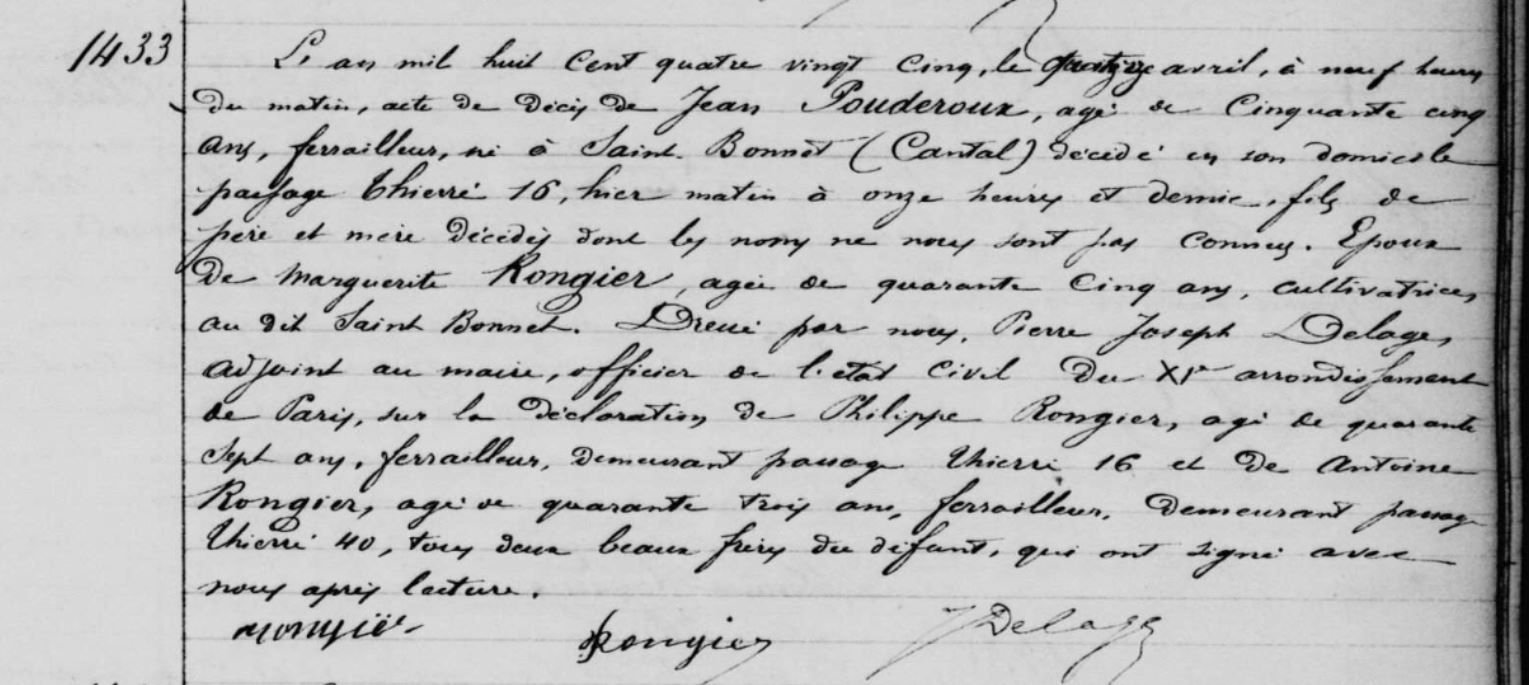 1433
L'an mil huit cent quatre vingt cinq, le quatorze avril, à neuf heures
du matin, acte de décès de Jean Pouderoux, agé de cinquante cinq
ans, ferrailleur, né à Saint-Bonnet (Cantal) décédé en son domicile
passage Thierré 16, hier matin à onze heures et demie, fils de
père et mère décédés dont les noms ne nous sont pas connus. Epoux
de Marguerite Rongier, agée de quarante cinq ans, cultivatrice,
au dit Saint Bonnet. Dressé par nous, Pierre Joseph Delage,
adjoint au maire, officier de l'état civil du XIe arrondissement
de Paris, sur la déclaration de Philippe Rongier, agé de quarante
sept ans, ferrailleur, demeurant passage Thierré 16 et de Antoine
Rongier, agé de quarante trois ans, ferrailleur, demeurant passage
Thierré 40, tous deux beaux frères du défunt, qui ont signé avec
nous après lecture.
Rongier Rongier J Delage